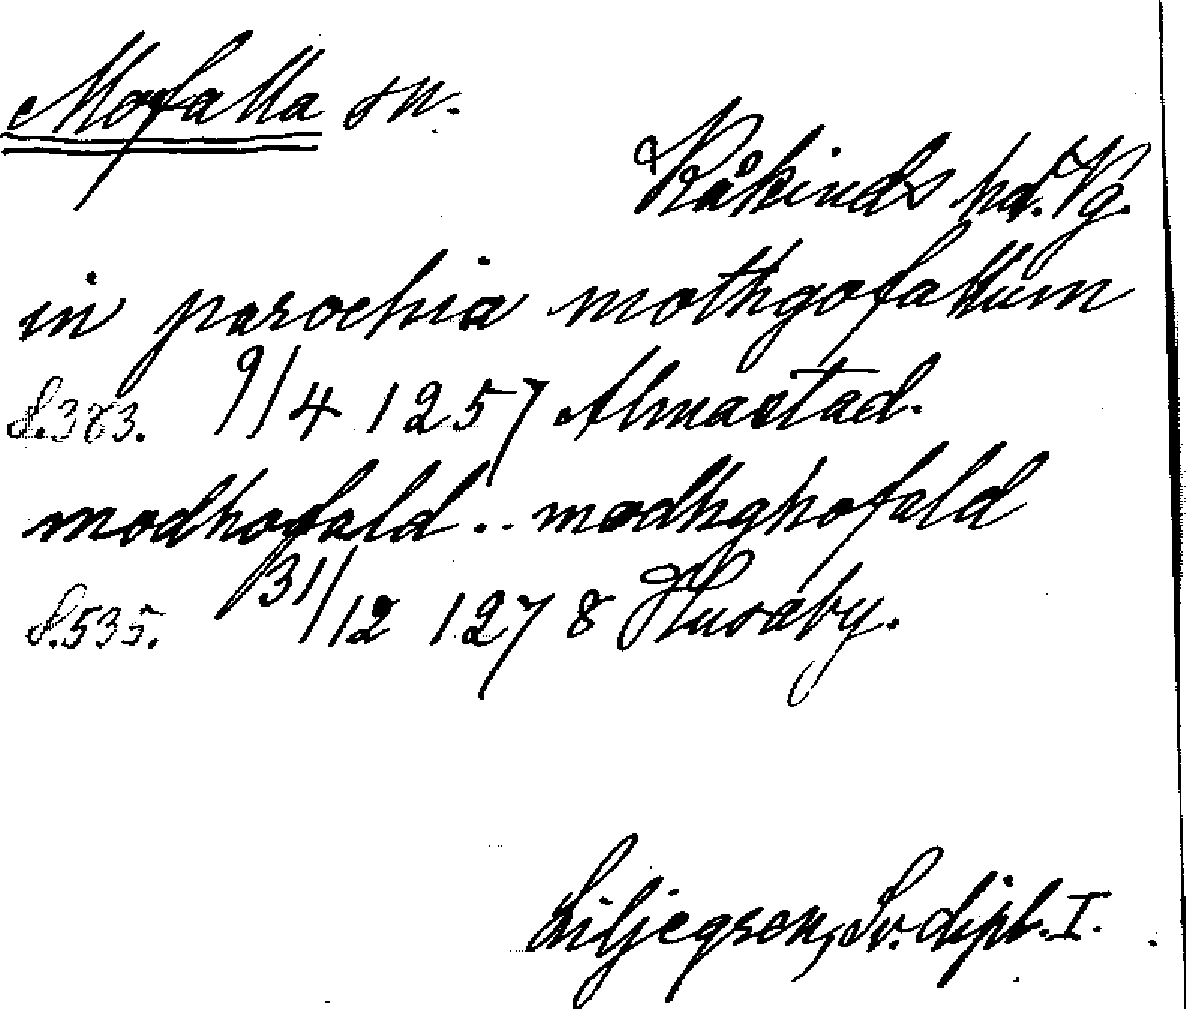 Mofalla sn.
Kåkinds hd. Vg.
in parochia mothgofallum
S.383. 9/4 1257 Almastad.
modhofald .. modhghofald
S.535. 31/12 1278 Husaby.
Liljegren, Sv. dipl. I.